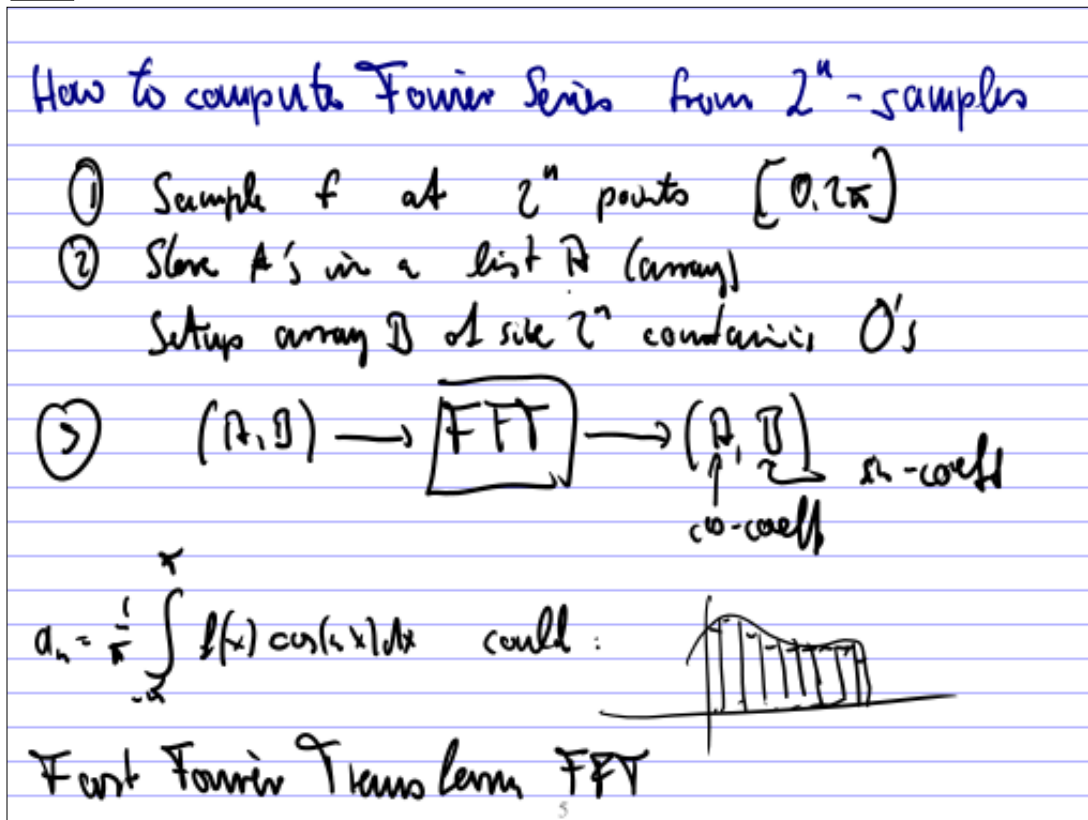 How to compute Fourier Series from 2ⁿ-samples
① Sample f at 2ⁿ points [0,2π]
② Store A's in a list A (array)
Setup array B of size 2ⁿ containing 0's
③ (A,B) → FFT → (A, B)
sin-coeff
cos-coeff
aₙ = 1/π ∫_{-π}^{π} f(x) cos(nx) dx could :
Fast Fourier Transform FFT
5